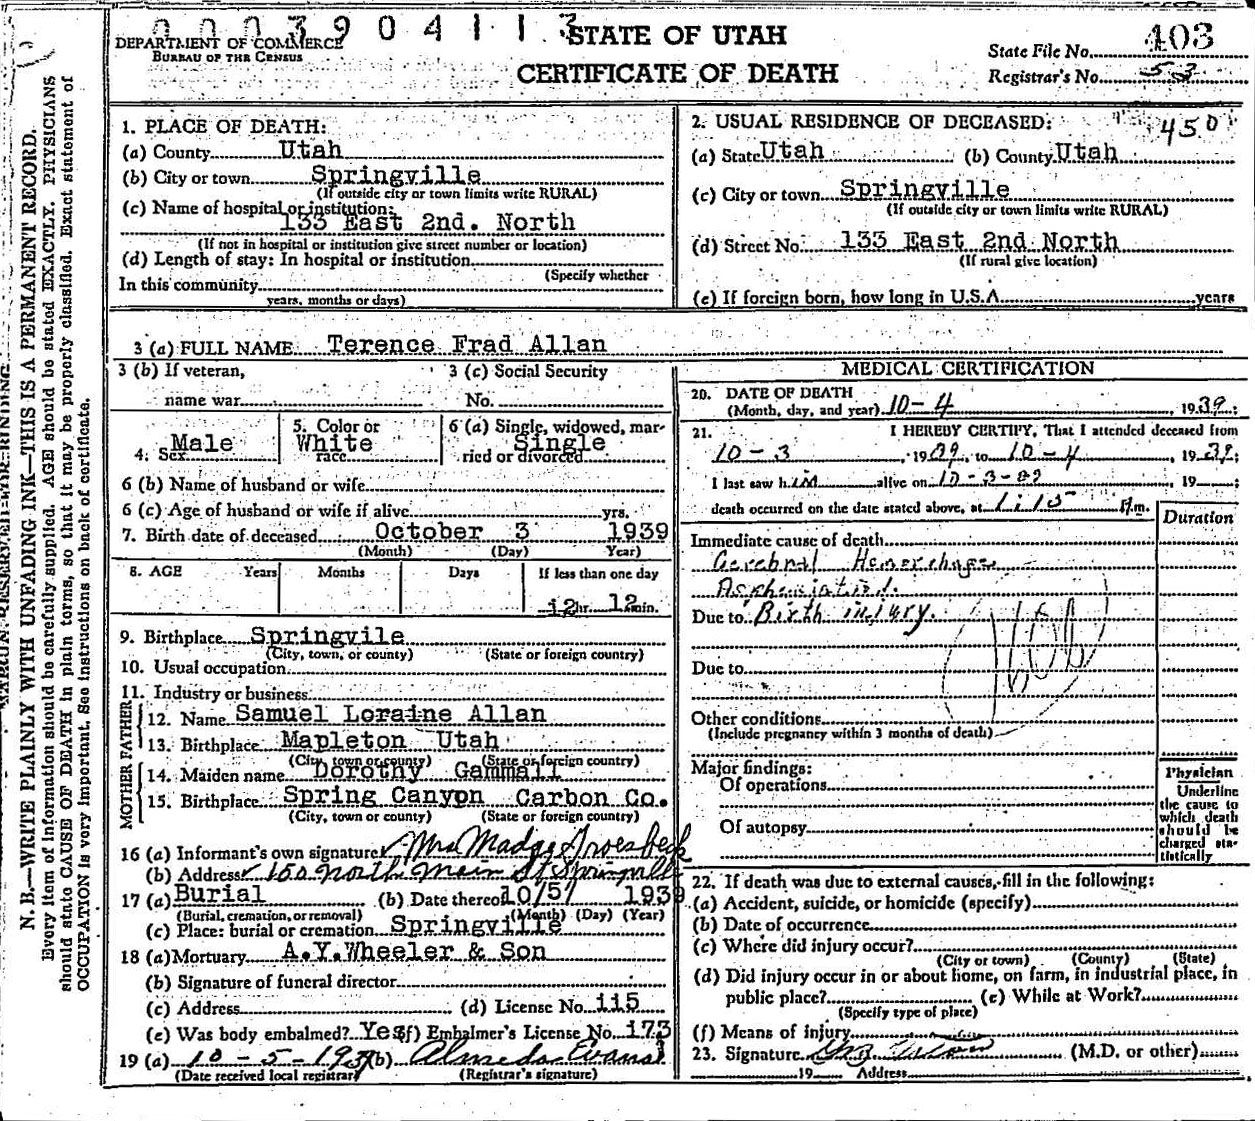 0003904113 STATE OF UTAH 403
DEPARTMENT OF COMMERCE
BUREAU OF THE CENSUS
State File No.
CERTIFICATE OF DEATH
Registrar's No. 53
1. PLACE OF DEATH:
(a) County Utah
(b) City or town Springville
(If outside city or town limits write RURAL)
(c) Name of hospital or institution:
133 East 2nd. North
(If not in hospital or institution give street number or location)
(d) Length of stay: In hospital or institution
(Specify whether
In this community
years, months or days)
2. USUAL RESIDENCE OF DECEASED: 450
(a) State Utah (b) County Utah
(c) City or town Springville
(If outside city or town limits write RURAL)
(d) Street No. 133 East 2nd North
(If rural give location)
(e) If foreign born, how long in U.S.A. years
3 (a) FULL NAME Terence Frad Allan
3 (b) If veteran, 3 (c) Social Security
name war No.
4. Sex Male 5. Color or race White 6 (a) Single, widowed, married or divorced Single
6 (b) Name of husband or wife
6 (c) Age of husband or wife if alive yrs.
7. Birth date of deceased October 3 1939
(Month) (Day) Year)
8. AGE Years Months Days If less than one day
12 hr. 12 min.
9. Birthplace Springvile
(City, town, or county) (State or foreign country)
10. Usual occupation
11. Industry or business
FATHER
12. Name Samuel Loraine Allan
13. Birthplace Mapleton Utah
(City, town or county) (State or foreign country)
MOTHER
14. Maiden name Dorothy Gammall
15. Birthplace Spring Canyon Carbon Co.
(City, town or county) (State or foreign country)
16 (a) Informant's own signature Mrs Madge Groesbeck
(b) Address 160 North Main St Springville
17 (a) Burial (b) Date thereof 10/5/ 1939
(Burial, cremation, or removal) (Month) (Day) (Year)
(c) Place: burial or cremation Springville
18 (a) Mortuary A.Y.Wheeler & Son
(b) Signature of funeral director
(c) Address (d) License No. 115
(e) Was body embalmed? Yes (f) Embalmer's License No. 173
19 (a) 10-5-1939 (b) Almeda Evans
(Date received local registrar) (Registrar's signature)
MEDICAL CERTIFICATION
20. DATE OF DEATH
(Month, day, and year) 10-4, 1939;
21. I HEREBY CERTIFY, That I attended deceased from
10-3, 1939, to 10-4, 1939;
I last saw him alive on 10-3-39, 19;
death occurred on the date stated above, at 1:15 A.m.
Duration
Immediate cause of death
Cerebral Hemorrhage
Asphyxiated.
Due to Birth injury.
160
Due to
Other conditions
(Include pregnancy within 3 months of death)
Major findings:
Of operations
Of autopsy
Physician
Underline
the cause to
which death
should be
charged sta-
tistically
22. If death was due to external causes, fill in the following:
(a) Accident, suicide, or homicide (specify)
(b) Date of occurrence
(c) Where did injury occur?
(City or town) (County) (State)
(d) Did injury occur in or about home, on farm, in industrial place, in
public place? (e) While at Work?
(Specify type of place)
(f) Means of injury
23. Signature (M.D. or other)
19 Address
N. B.—WRITE PLAINLY WITH UNFADING INK—THIS IS A PERMANENT RECORD.
Every item of information should be carefully supplied. AGE should be stated EXACTLY. PHYSICIANS
should state CAUSE OF DEATH in plain terms, so that it may be properly classified. Exact statement of
OCCUPATION is very important. See instructions on back of certificate.